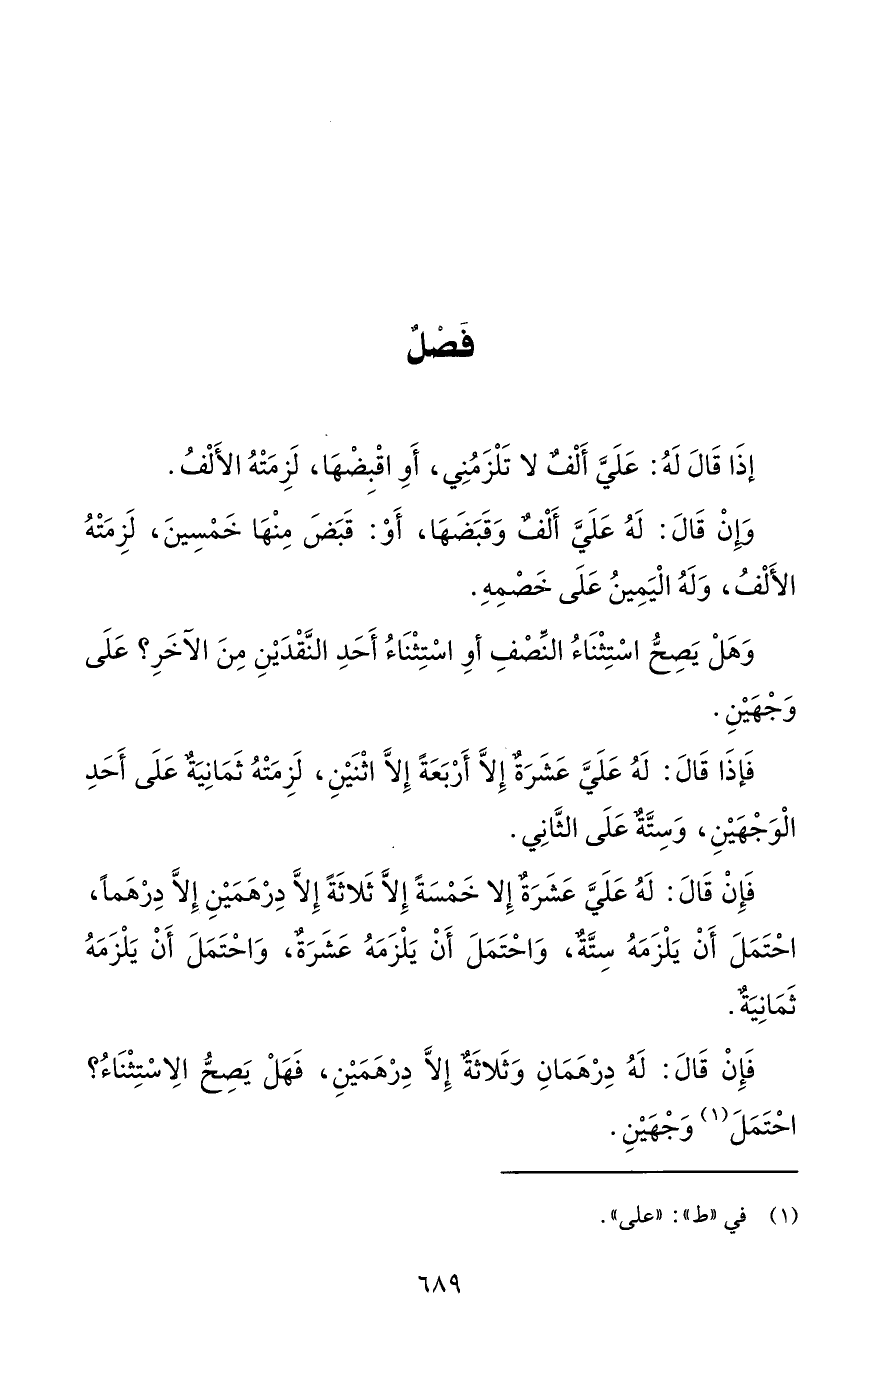 فَصْلٌ
إذَا قَالَ لَهُ: عَلَيَّ أَلْفٌ لا تَلْزَمُنِي، أَوِ اقْبِضْهَا، لَزِمَتْهُ الأَلْفُ.
وَإِنْ قَالَ: لَهُ عَلَيَّ أَلْفٌ وَقَبَضَهَا، أَوْ: قَبَضَ مِنْهَا خَمْسِينَ، لَزِمَتْهُ
الأَلْفُ، وَلَهُ الْيَمِينُ عَلَى خَصْمِهِ.
وَهَلْ يَصِحُّ اسْتِثْنَاءُ النِّصْفِ أوِ اسْتِثْنَاءُ أَحَدِ النَّقْدَيْنِ مِنَ الآخَرِ؟ عَلَى
وَجْهَيْنِ.
فَإذَا قَالَ: لَهُ عَلَيَّ عَشَرَةٌ إلاَّ أَرْبَعَةً إلاَّ اثْنَيْنِ، لَزِمَتْهُ ثَمَانِيَةٌ عَلَى أَحَدِ
الْوَجْهَيْنِ، وَسِتَّةٌ عَلَى الثَّانِي.
فَإِنْ قَالَ: لَهُ عَلَيَّ عَشَرَةٌ إلا خَمْسَةً إلاَّ ثَلاثَةً إلاَّ دِرْهَمَيْنِ إلاَّ دِرْهَماً،
احْتَمَلَ أَنْ يَلْزَمَهُ سِتَّةٌ، وَاحْتَمَلَ أَنْ يَلْزَمَهُ عَشَرَةٌ، وَاحْتَمَلَ أَنْ يَلْزَمَهُ
ثَمَانِيَةٌ.
فَإِنْ قَالَ: لَهُ دِرْهَمَانِ وَثَلاثَةٌ إلاَّ دِرْهَمَيْنِ، فَهَلْ يَصِحُّ الِاسْتِثْنَاءُ؟
احْتَمَلَ(١) وَجْهَيْنِ.
(١) في «ط»: «على».
٦٨٩